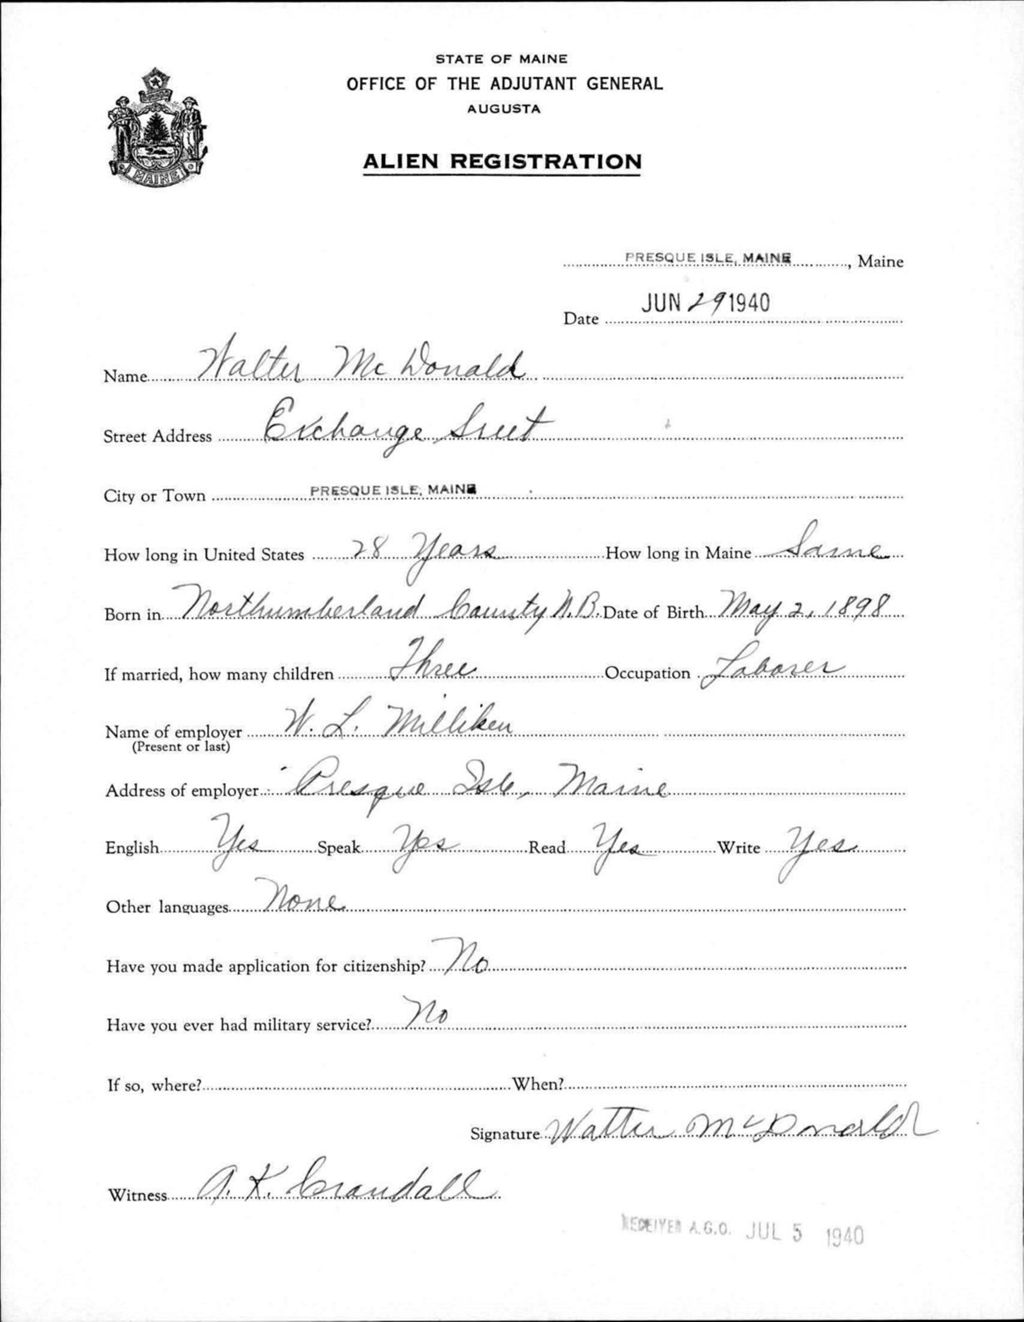 STATE OF MAINE
OFFICE OF THE ADJUTANT GENERAL
AUGUSTA
ALIEN REGISTRATION
MAINE
PRESQUE ISLE, MAINE, Maine
Date JUN 29 1940
Name Walter McDonald
Street Address Exchange Sreet
City or Town PRESQUE ISLE, MAINE
How long in United States 28 Years How long in Maine Same
Born in Northumberland County N.B. Date of Birth May 2, 1898
If married, how many children Three Occupation Laborer
Name of employer W. L. Milliken
(Present or last)
Address of employer Presque Isle, Maine
English Yes Speak Yes Read Yes Write Yes
Other languages None
Have you made application for citizenship? No
Have you ever had military service? No
If so, where? When?
Signature Walter McDonald
Witness A. K. Crandall
RECEIVED A.G.O. JUL 5 1940